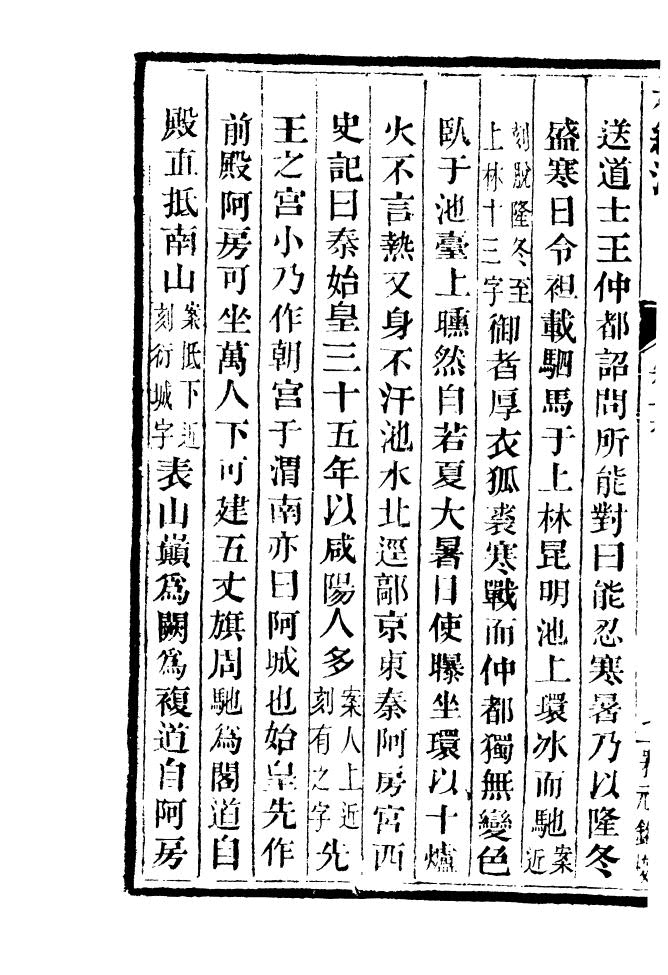 送道士王仲都詔問所能對曰能忍寒暑乃以隆冬
盛寒日令袒載駟馬于上林昆明池上環冰而馳案近
刻脫隆冬至上林十三字御者厚衣狐裘寒戰而仲都獨無變色
臥于池臺上曛然自若夏大暑日使曝坐環以十爐
火不言熱又身不汗池水北逕鄗京東秦阿房宮西
史記曰秦始皇三十五年以咸陽人多案人上近刻有之字先
王之宮小乃作朝宮于渭南亦曰阿城也始皇先作
前殿阿房可坐萬人下可建五丈旗周馳為閣道自
殿直抵南山案抵下近刻衍城字表山巔爲闕爲複道自阿房